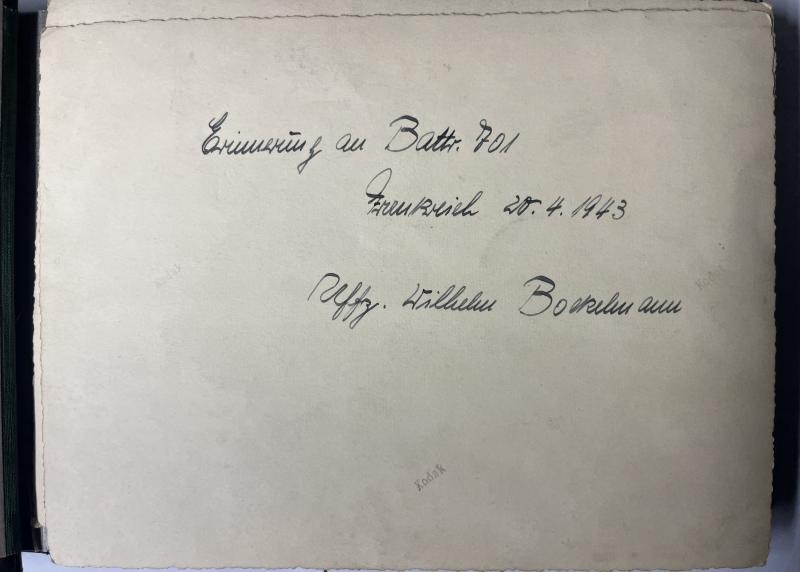 Erinnerung an Battr. 701
Frankreich 20.4.1943
Kodak
Kodak
Uffz. Wilhelm Bockelmann
Kodak